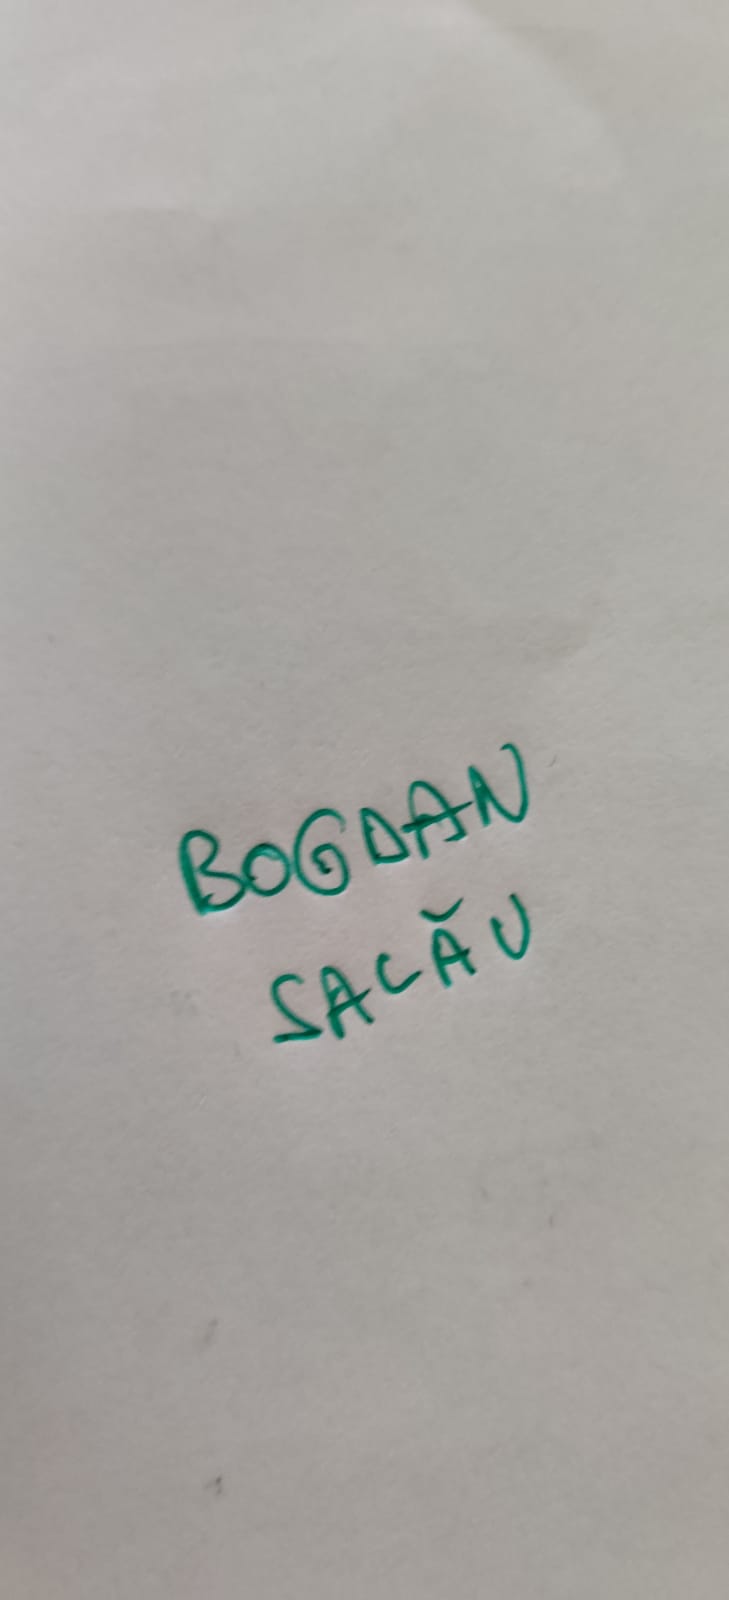 BOGDAN
SALĂU